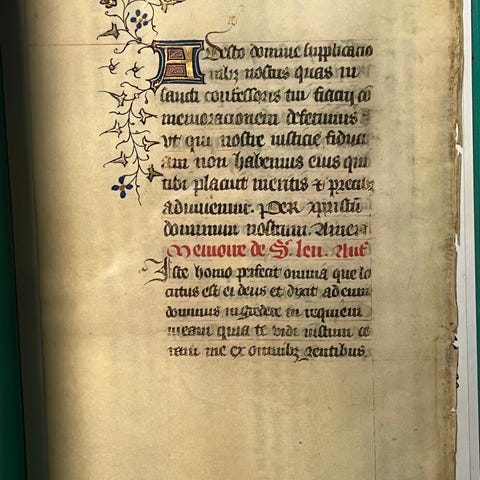 Adesto domine supplicacio
nibz nostris quas in
sancti confessoris tui fiacrij cō
memoracionem deferimus
vt qui nostre iusticie fiduci
am non habemus eius qui
tibi placuit meritis & precibz
adiuuemur. Per xpristū
dominum nostrum. Amen
Memoire de St. leu. Ant
Iste homo perfecit omnia que lo
cutus est ei deus et dixit ad eum
dominus ingredere in requiem
meam quia te vidi iustum co
ram me ex omnibz gentibus.